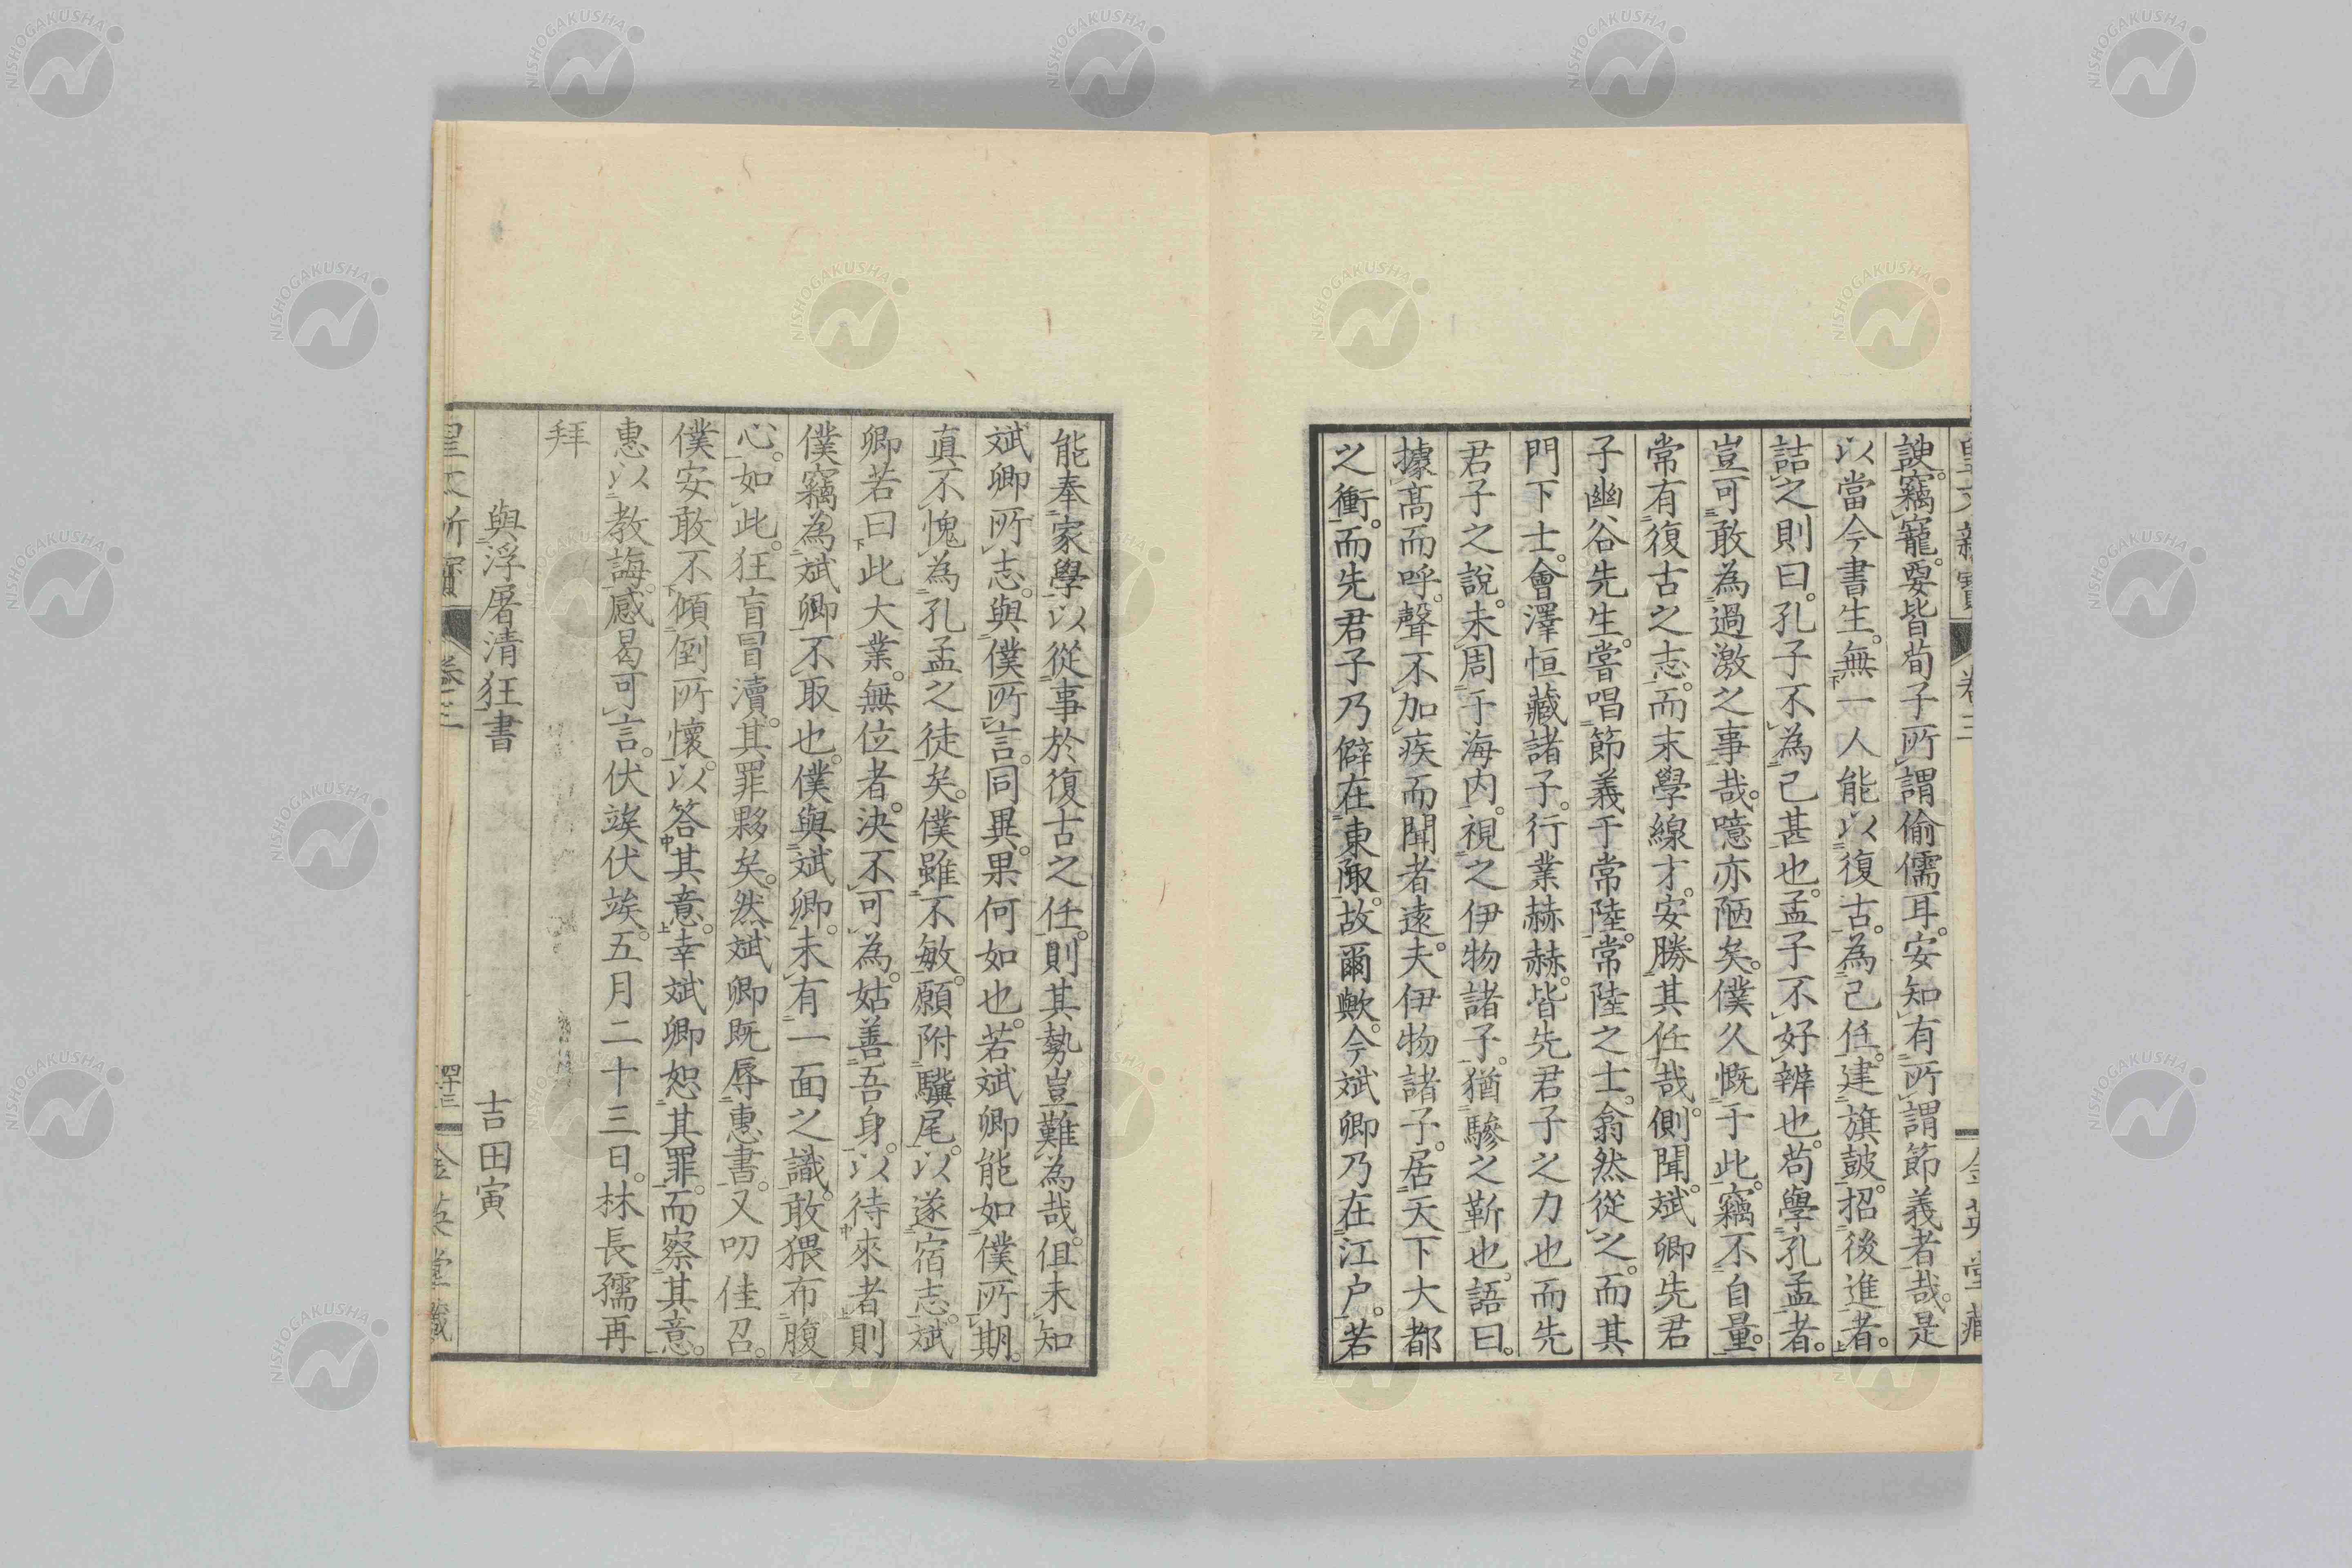 諛。竊寵。要皆荀子所謂偷儒耳。安知有所謂節義者哉。是
以當今書生。無一人能以復古。為己任。建旗鼓。招後進者。
詰之則曰。孔子不為己甚也。孟子不好辨也。苟學孔孟者。
豈可敢為過激之事哉。噫亦陋矣。僕久慨于此。竊不自量。
常有復古之志。而末學線才。安勝其任哉。側聞。斌卿先君
子幽谷先生。嘗唱節義于常陸。常陸之士。翕然從之。而其
門下士。會澤恒藏諸子。行業赫赫。皆先君子之力也而先
君子之說。未周于海内。視之伊物諸子。猶驂之靳也。語曰。
據高而呼。聲不加疾而聞者遠。夫伊物諸子。居天下大都
之衝。而先君子乃僻在東陬。故爾歟。今斌卿乃在江户。若
能奉家學以從事於復古之任。則其勢豈難為哉。但未知
斌卿所志。與僕所言。同異。果何如也。若斌卿能如僕所期。
真不愧為孔孟之徒矣。僕雖不敏。願附驥尾。以遂宿志。斌
卿若曰此大業。無位者。決不可為。姑善吾身。以待來者則
僕竊為斌卿不取也。僕與斌卿。未有一面之識。敢猥布腹
心。如此。狂盲冒瀆。其罪夥矣。然斌卿既辱惠書。又叨佳召。
僕安敢不傾倒所懷。以答其意。幸斌卿恕其罪。而察其意。
惠以教誨。感曷可言。伏竢伏竢。五月二十三日。林長孺再
拜
與浮屠清狂書
吉田寅
卷三
四十三